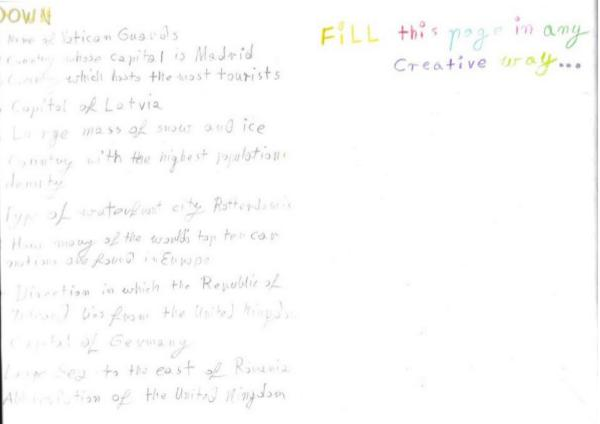 DOWN
Name of Vatican Guards
Country whose capital is Madrid
Country which hosts the most tourists
Capital of Latvia
Large mass of snow and ice
Country with the highest population
density
Type of waterfront city Rotterdam is
How many of the world's top ten car
nations are found in Europe
Direction in which the Republic of
Ireland lies from the United Kingdom
Capital of Germany
Large Sea to the east of Romania
Abbreviation of the United Kingdom
FiLL this page in any
Creative way...